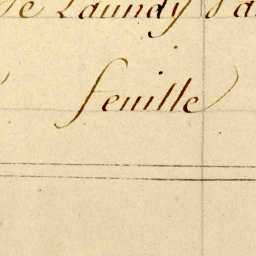 de Laundy
feuille